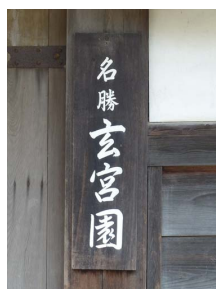 名勝
玄宮園